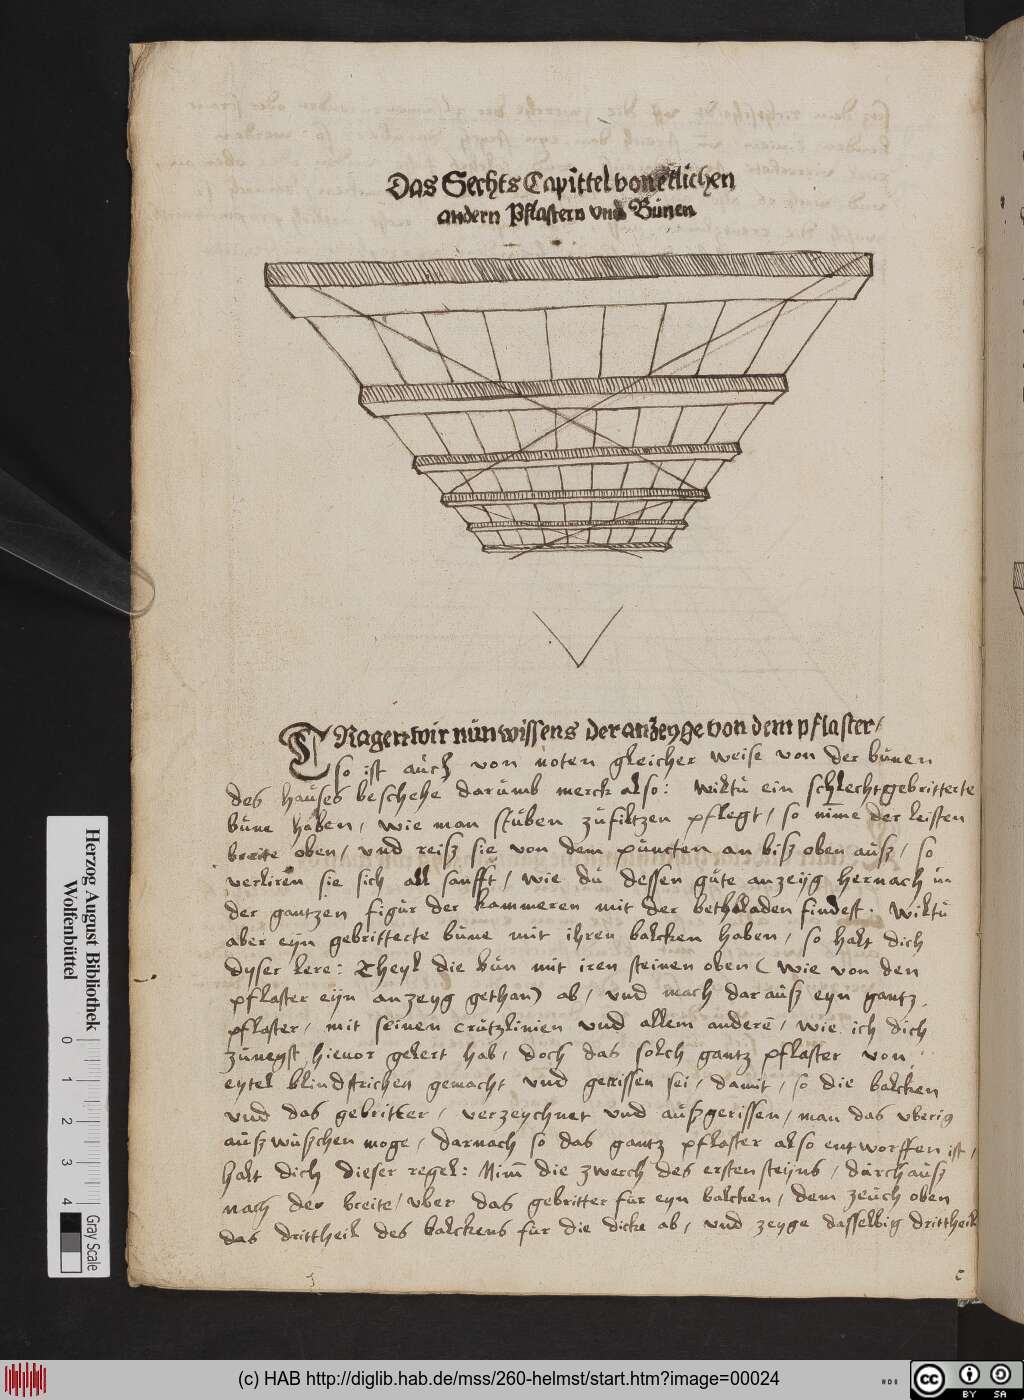 Das Sechts Capittel von etlichen
andern Pflastern vnd Bünen
TRagen wir nün wissens der anzeyge von dem pflaster/
so ist aüch von nöten gleicher weise von der bünen
des haüses beschehe darümb merck also: Wiltü ein schlecht gebritterte
büne haben/ wie man stüben züfiltzen pflegt/ so nim̄e der leisten
breite oben/ vnd reisz sie von dem püncten an bisz oben aüsz/ so
verliren sie sich all sanfft/ wie dü dessen güte anzeÿg hernach in
der gantzen figür der kammeren mit der bethladen findest. Wiltü
aber eÿn gebritterte büne mit ihren balcken haben/ so halt dich
dyser lere: Theyl die bün mit iren steinen oben (wie von den
pflaster eÿn anzeyg gethan) ab/ vnd mach daraüsz eyn gantz
pflaster/ mit seinen crützlinien vnd allem anderē/ wie ich dich
zünegst hieuor gelert hab/ doch das solch gantz pflaster von
eytel blindstrichen gemacht vnd gerissen sei/ damit/ so die balcken
vnd das gebritter/ verzeychnet vnd aüszgerissen/ man das vberig
aüszwüschen moge/ darnach so das gantz pflaster also entworffen ist/
halt dich dieser regel: Nim̄ die zwerch des ersten steÿns/ dürchaüsz
nach der breite/ vber das gebritter für eyn balcken/ dem zeüch oben
das drittheil des balckens für die dicke ab/ vnd zeyge dasselbig drittheil
Herzog August Bibliothek
Wolfenbüttel
0 1 2 3 4
Gray Scale
(c) HAB http://diglib.hab.de/mss/260-helmst/start.htm?image=00024
cc BY SA